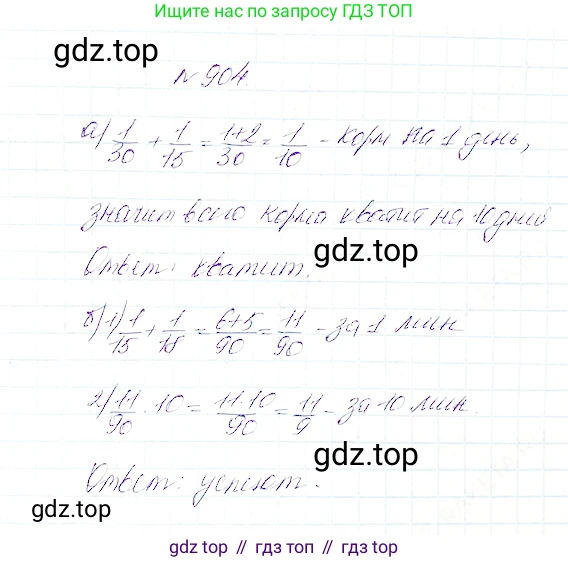 Ищите нас по запросу ГДЗ ТОП
gdz.top
gdz.top
№ 904.
а) 1/30 + 1/15 = 1+2/30 = 1/10 - корм на 1 день,
значит всего корма хватит на 10 дней
gdz.top
Ответ: хватит.
б) 1) 1/15 + 1/18 = 6+5/90 = 11/90 - за 1 мин
2) 11/90 · 10 = 11·10/90 = 11/9 - за 10 мин.
gdz.top
Ответ: успеют.
gdz.top
gdz top // гдз топ // gdz.top